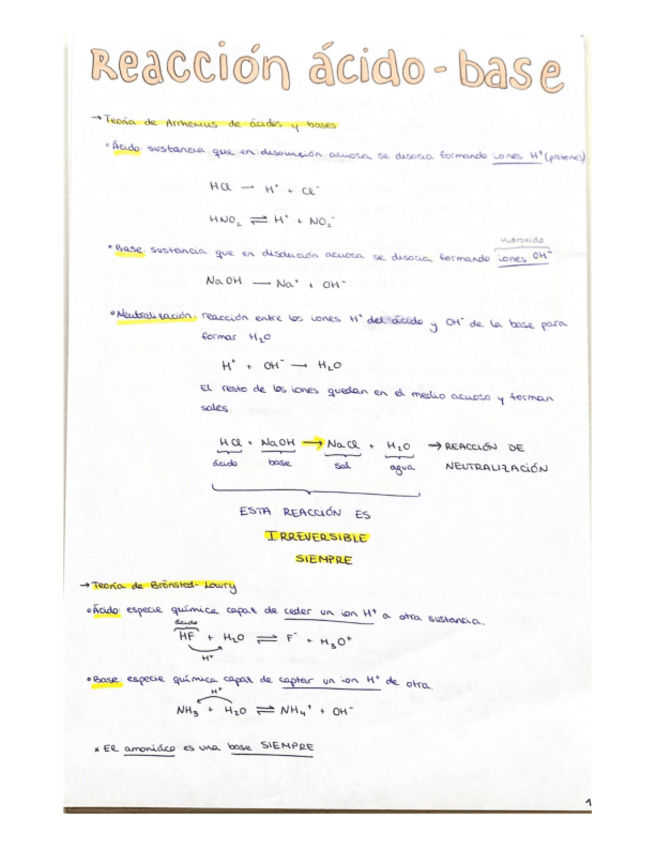 Reacción ácido - base
→ Teoría de Arrhenius de ácidos y bases
• Ácido: sustancia que en disolución acuosa se disocia formando iones H⁺ (protones)
HCl → H⁺ + Cl⁻
HNO₂ ⇌ H⁺ + NO₂⁻
Hidróxido
• Base: sustancia que en disolución acuosa se disocia formando iones OH⁻
NaOH — Na⁺ + OH⁻
• Neutralización: reacción entre los iones H⁺ del ácido y OH⁻ de la base para
formar H₂O
H⁺ + OH⁻ → H₂O
El resto de los iones quedan en el medio acuoso y forman
sales.
HCl + NaOH → NaCl + H₂O → REACCIÓN DE
ácido base sal agua NEUTRALIZACIÓN
ESTA REACCIÓN ES
IRREVERSIBLE
SIEMPRE
→ Teoría de Brönsted-Lowry
• Ácido: especie química capaz de ceder un ion H⁺ a otra sustancia.
ácido
HF + H₂O ⇌ F⁻ + H₃O⁺
H⁺
• Base: especie química capaz de captar un ion H⁺ de otra.
H⁺
NH₃ + H₂O ⇌ NH₄⁺ + OH⁻
* El amoniáco es una base SIEMPRE
1